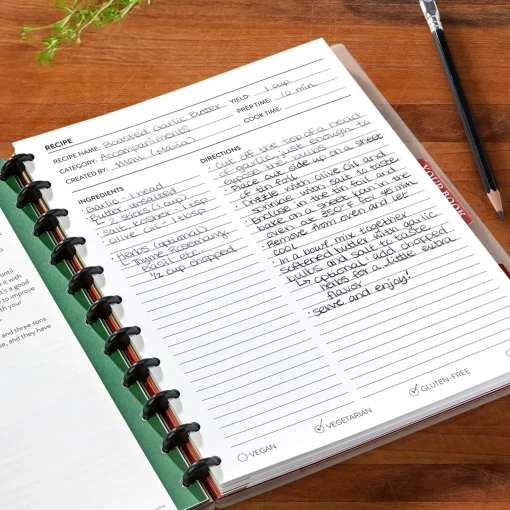 RECIPE
RECIPE NAME: Roasted Garlic Butter
CATEGORY: Accompaniments
CREATED BY: Mimi (Maria)
YIELD: 1 cup
PREP TIME: 10 min.
COOK TIME:
INGREDIENTS
Garlic - 1 head
Butter unsalted
2 sticks (1 cup)
Salt, kosher 1 tbsp
Olive oil - 1 tbsp
Herbs (optional)
Thyme, Rosemary,
Basil, etc.
1/2 cup chopped
DIRECTIONS
· Cut off the top of a head
of garlic, just enough to
expose the bulbs
· Place cut side up on a sheet
of tin foil
· Drizzle with olive oil and
sprinkle with salt to taste
· Enclose in the tin foil and
bake on a sheet pan in the
oven at 350°F for 45 min
· Remove from oven and let
cool
· In a bowl mix together
softened butter with garlic
bulbs and salt to taste
↳ optional: add chopped
herbs for a little extra
flavor
· Serve and enjoy!
VEGAN
✓ VEGETARIAN
✓ GLUTEN-FREE
YOUR BODY
until
it with
's a good
to improve
with your
and three sons
e, and they have